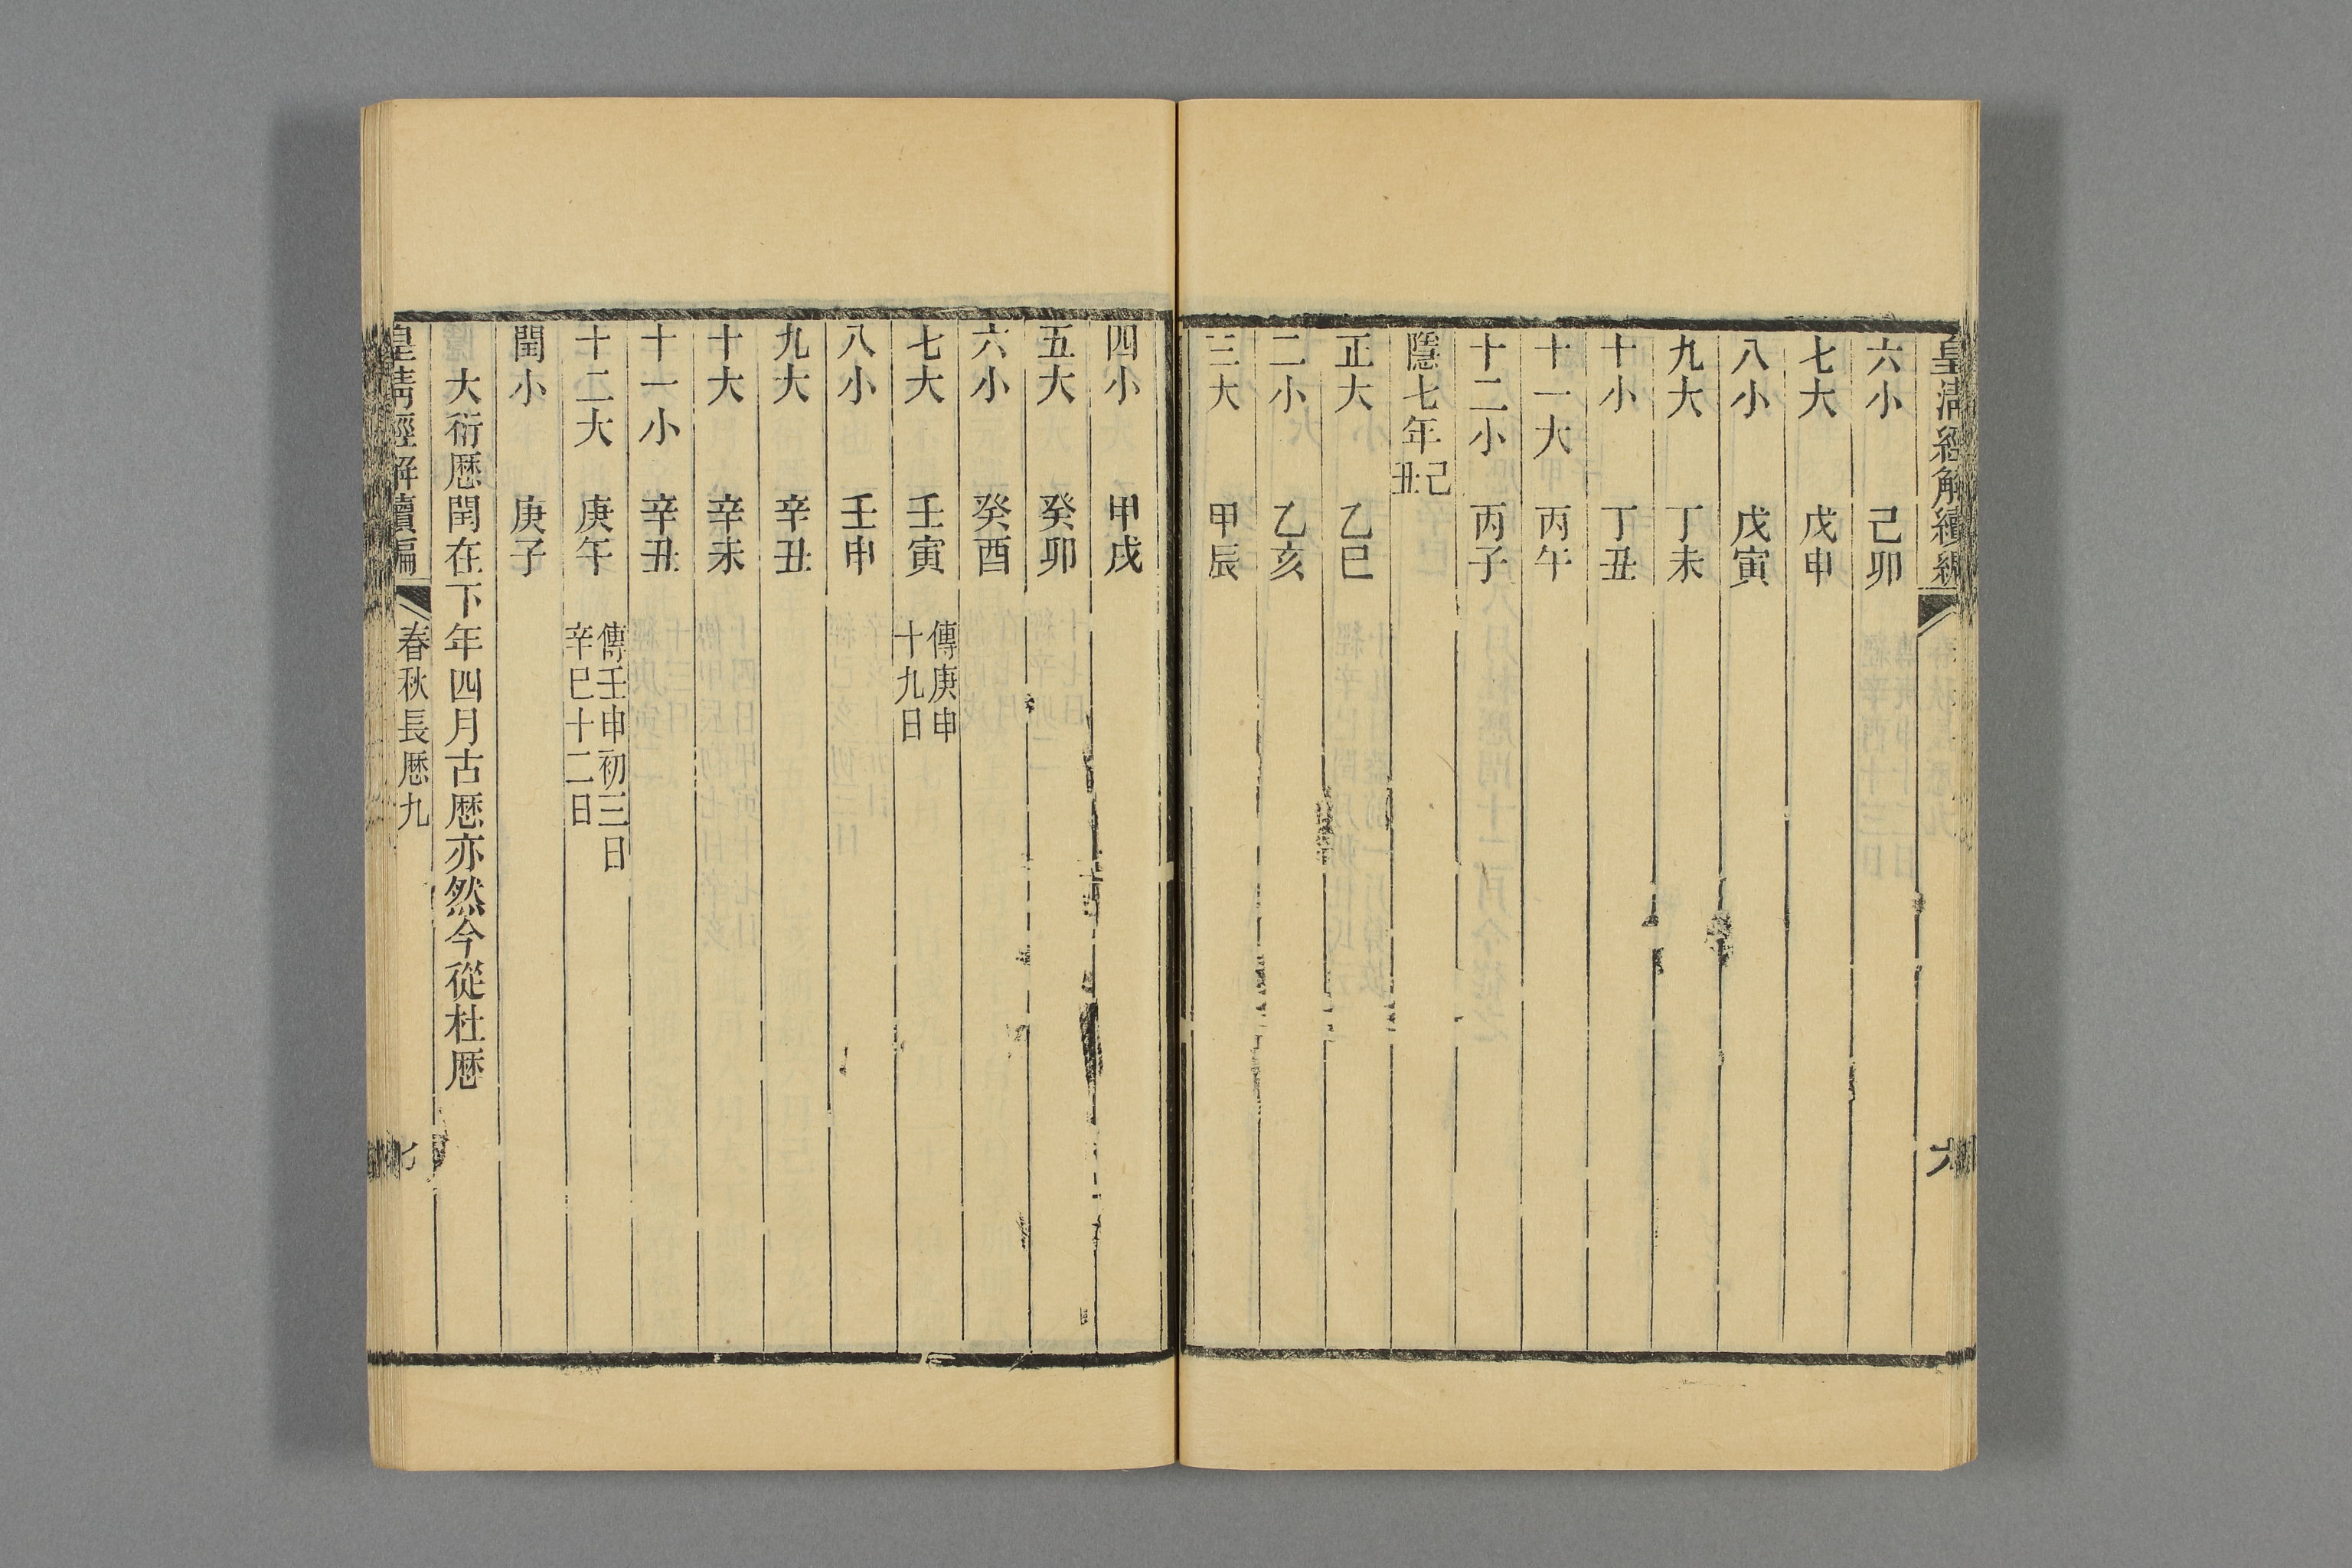 皇清經解續編
六
六小 己卯
七大 戊申
八小 戊寅
九大 丁未
十小 丁丑
十一大 丙午
十二小 丙子
隱七年己丑
正大 乙巳
二小 乙亥
三大 甲辰
四小 甲戌
五大 癸卯
六小 癸酉
七大 壬寅 傳庚申
十九日
八小 壬申
九大 辛丑
十大 辛未
十一小 辛丑
十二大 庚午 傳壬申初三日
辛巳十二日
閏小 庚子
大衍厯閏在下年四月古厯亦然今從杜厯
皇清經解續編 春秋長厯九
七